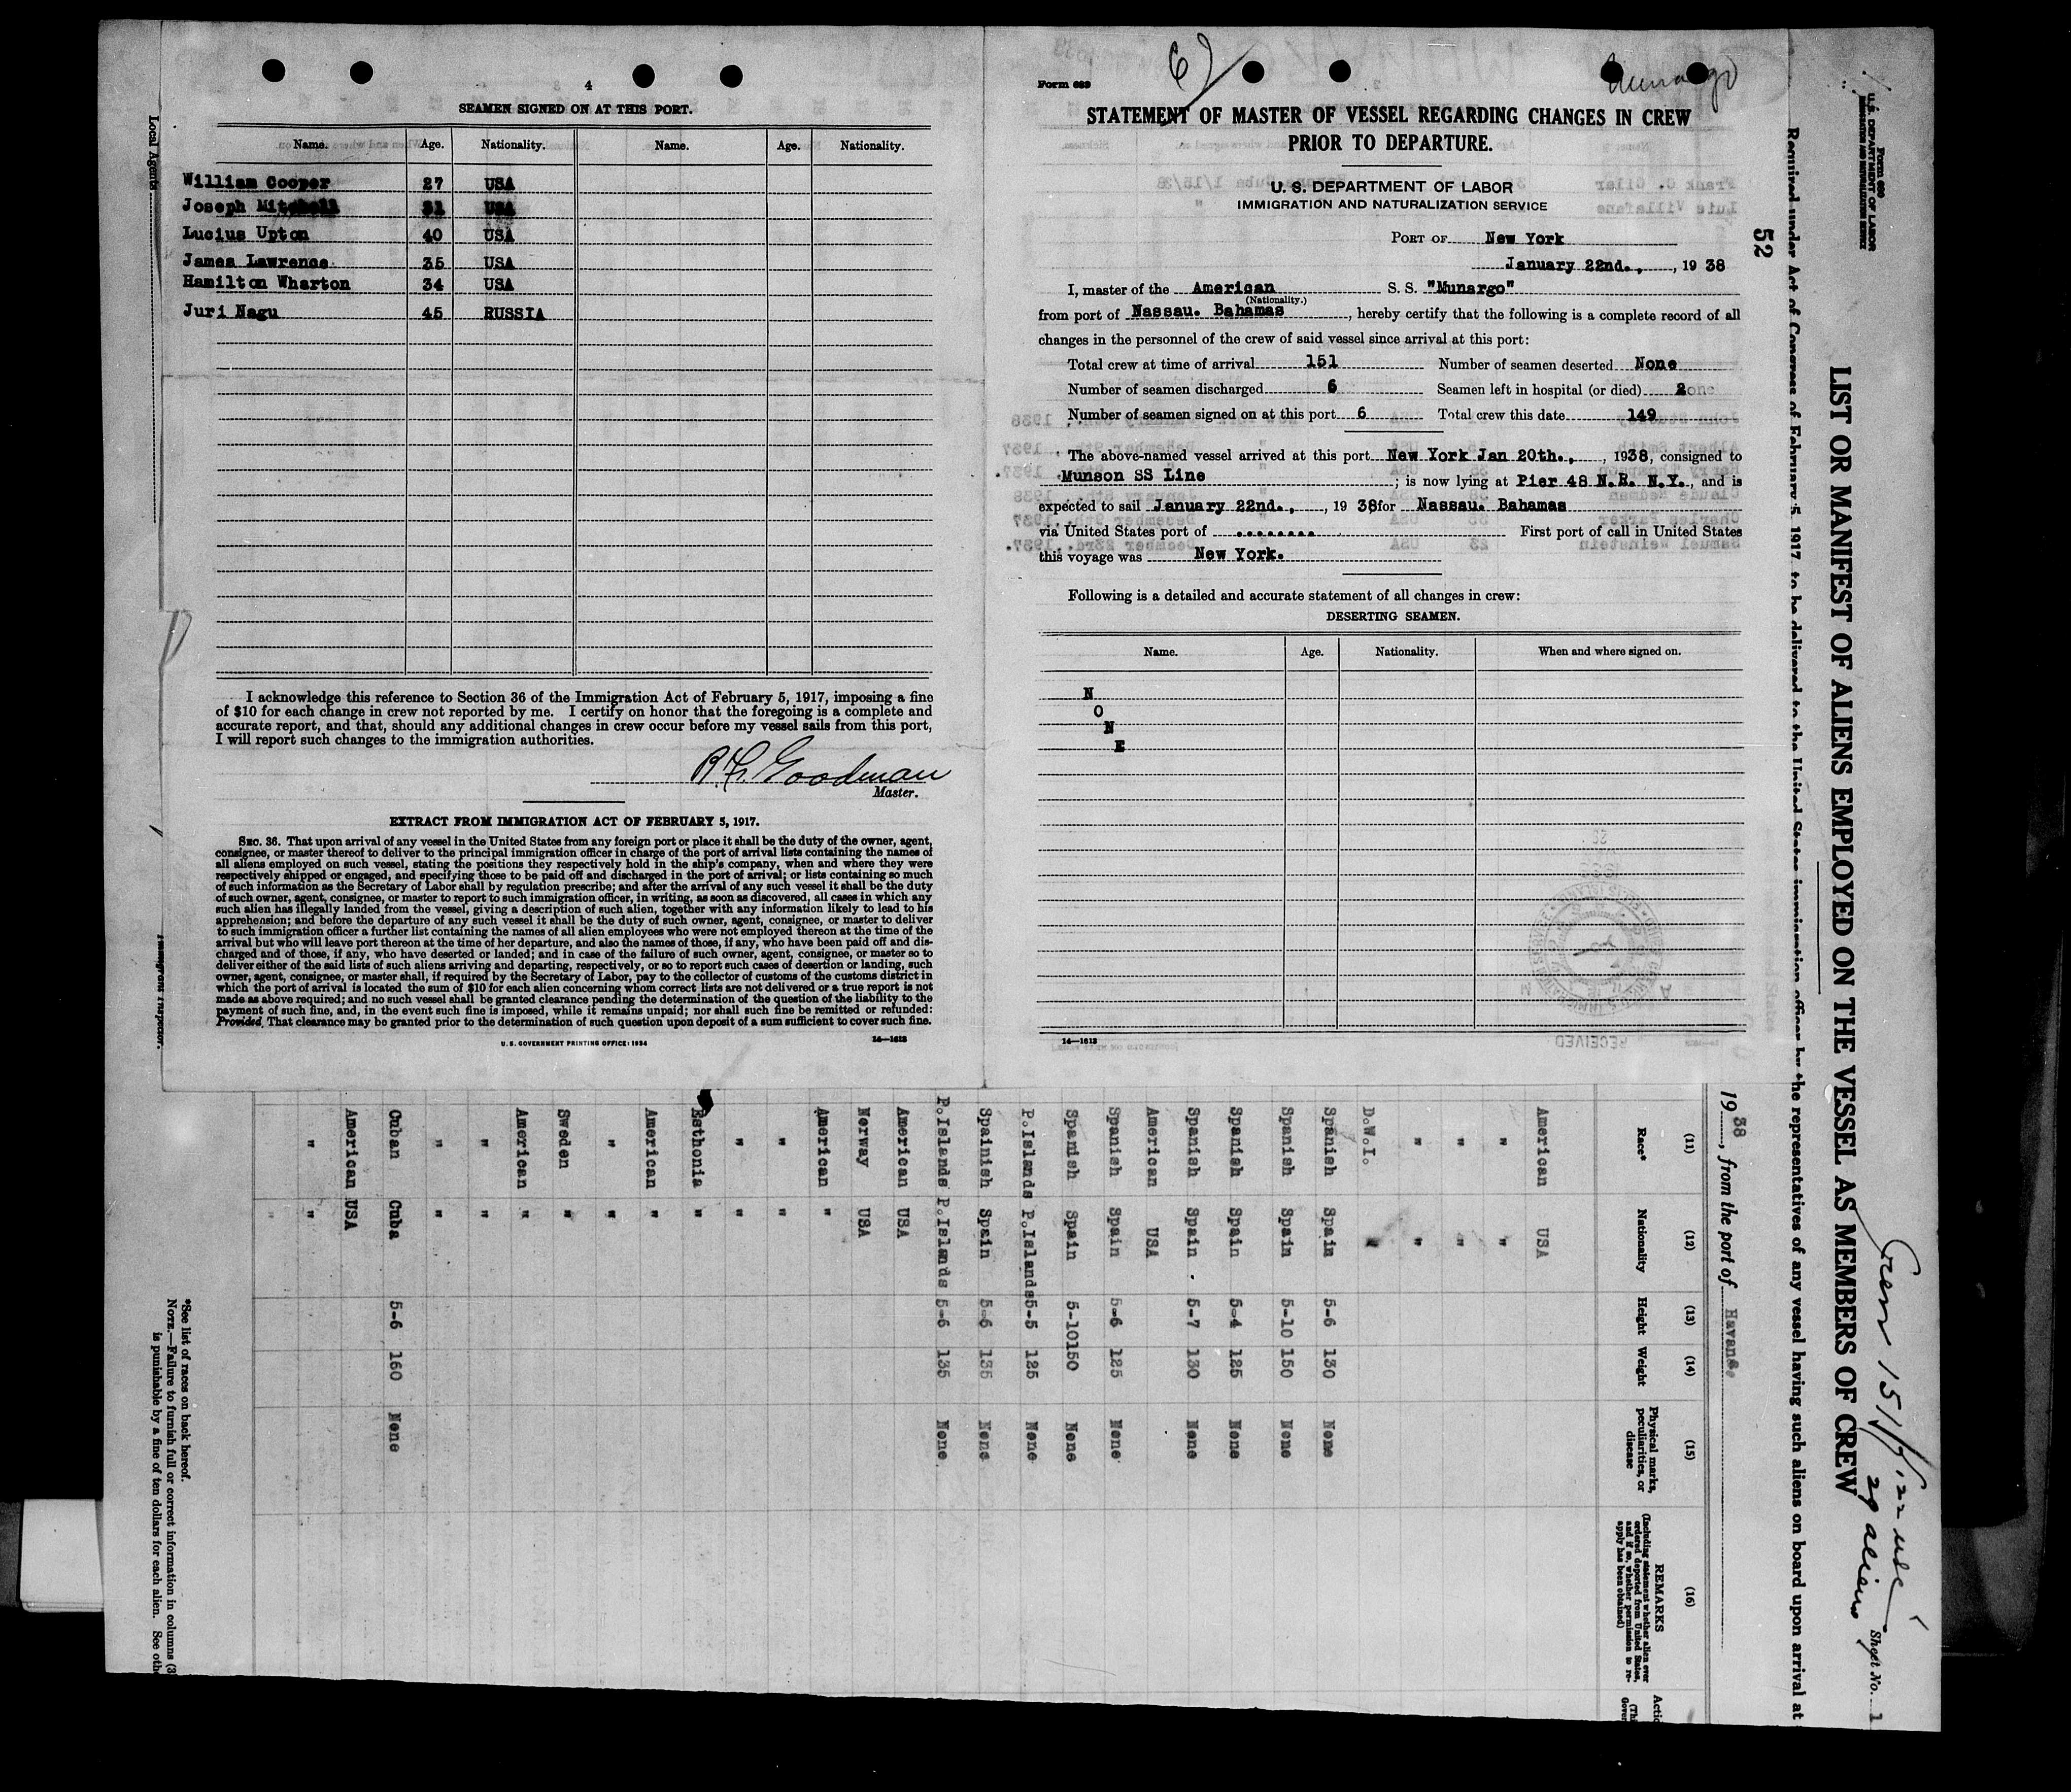 4
SEAMEN SIGNED ON AT THIS PORT.
Name. Age. Nationality. Name. Age. Nationality.
William Cooper 27 USA
Joseph Mitchell 31 USA
Lucius Upton 40 USA
James Lawrence. 35 USA
Hamilton Wharton 34 USA
Juri Nagu 45 RUSSIA
I acknowledge this reference to Section 36 of the Immigration Act of February 5, 1917, imposing a fine
of $10 for each change in crew not reported by me. I certify on honor that the foregoing is a complete and
accurate report, and that, should any additional changes in crew occur before my vessel sails from this port,
I will report such changes to the immigration authorities.
Goodman
Master.
EXTRACT FROM IMMIGRATION ACT OF FEBRUARY 5, 1917.
SEC. 36. That upon arrival of any vessel in the United States from any foreign port or place it shall be the duty of the owner, agent,
consignee, or master thereof to deliver to the principal immigration officer in charge of the port of arrival lists containing the names of
all aliens employed on such vessel, stating the positions they respectively hold in the ship's company, when and where they were
respectively shipped or engaged, and specifying those to be paid off and discharged in the port of arrival; or lists containing so much
of such information as the Secretary of Labor shall by regulation prescribe; and after the arrival of any such vessel it shall be the duty
of such owner, agent, consignee, or master to report to such immigration officer, in writing, as soon as discovered, all cases in which any
such alien has illegally landed from the vessel, giving a description of such alien, together with any information likely to lead to his
apprehension; and before the departure of any such vessel it shall be the duty of such owner, agent, consignee, or master to deliver
to such immigration officer a further list containing the names of all alien employees who were not employed thereon at the time of the
arrival but who will leave port thereon at the time of her departure, and also the names of those, if any, who have been paid off and dis-
charged and of those, if any, who have deserted or landed; and in case of the failure of such owner, agent, consignee, or master so to
deliver either of the said lists of such aliens arriving and departing, respectively, or so to report such cases of desertion or landing, such
owner, agent, consignee, or master shall, if required by the Secretary of Labor, pay to the collector of customs of the customs district in
which the port of arrival is located the sum of $10 for each alien concerning whom correct lists are not delivered or a true report is not
made as above required; and no such vessel shall be granted clearance pending the determination of the question of the liability to the
payment of such fine, and, in the event such fine is imposed, while it remains unpaid; nor shall such fine be remitted or refunded:
Provided, That clearance may be granted prior to the determination of such question upon deposit of a sum sufficient to cover such fine.
U. S. GOVERNMENT PRINTING OFFICE: 1934 14—1613
Local Agents
Immigrant Inspector.
Form 689
Munargo
STATEMENT OF MASTER OF VESSEL REGARDING CHANGES IN CREW
PRIOR TO DEPARTURE.
U. S. DEPARTMENT OF LABOR
IMMIGRATION AND NATURALIZATION SERVICE
PORT OF New York
January 22nd., , 19 38
I, master of the American S. S. "Munargo"
(Nationality.)
from port of Nassau. Bahamas , hereby certify that the following is a complete record of all
changes in the personnel of the crew of said vessel since arrival at this port:
Total crew at time of arrival 151 Number of seamen deserted None
Number of seamen discharged 6 Seamen left in hospital (or died) 2
Number of seamen signed on at this port 6 Total crew this date 149
The above-named vessel arrived at this port New York Jan 20th., , 1938, consigned to
Munson SS Line ; is now lying at Pier 48 N.R. N.Y. , and is
expected to sail January 22nd., , 19 38 for Nassau. Bahamas
via United States port of ........ First port of call in United States
this voyage was New York.
Following is a detailed and accurate statement of all changes in crew:
DESERTING SEAMEN.
Name. Age. Nationality. When and where signed on.
N
O
N
E
14—1613
Form 689
U. S. DEPARTMENT OF LABOR
IMMIGRATION AND NATURALIZATION SERVICE
LIST OR MANIFEST OF ALIENS EMPLOYED ON THE VESSEL AS MEMBERS OF CREW
Sheet No. 1
29 aliens
52
Required under Act of Congress of February 5, 1917, to be delivered to the United States immigration officer by the representatives of any vessel having such aliens on board upon arrival at
1938, from the port of Havana.
(11) (12) (13) (14) (15) (16)
Race* Nationality Height Weight Physical marks, peculiarities, or disease REMARKS
(Including statement whether alien ever
ordered deported from United States,
and if so, whether permission to re-
apply has been obtained)
American USA
" "
" "
" "
D.W.I.
Spanish Spain 5-6 130 None
Spanish Spain 5-10 150 None
Spanish Spain 5-4 125 None
Spanish Spain 5-7 130 None
American USA
Spanish Spain 5-6 125 None
Spanish Spain 5-10 150 None
P.Islands P.Islands 5-5 125 None
Spainish Spain 5-6 135 None
P.Islands P.Islands 5-6 135 None
American USA
Norway USA
American "
" "
" "
Esthonia "
American "
" "
Sweden "
American "
" "
" "
Cuban Cuba 5-6 160 None
American USA
" "
*See list of races on back hereof.
NOTE.—Failure to furnish full or correct information in columns (3
is punishable by a fine of ten dollars for each alien. See othe